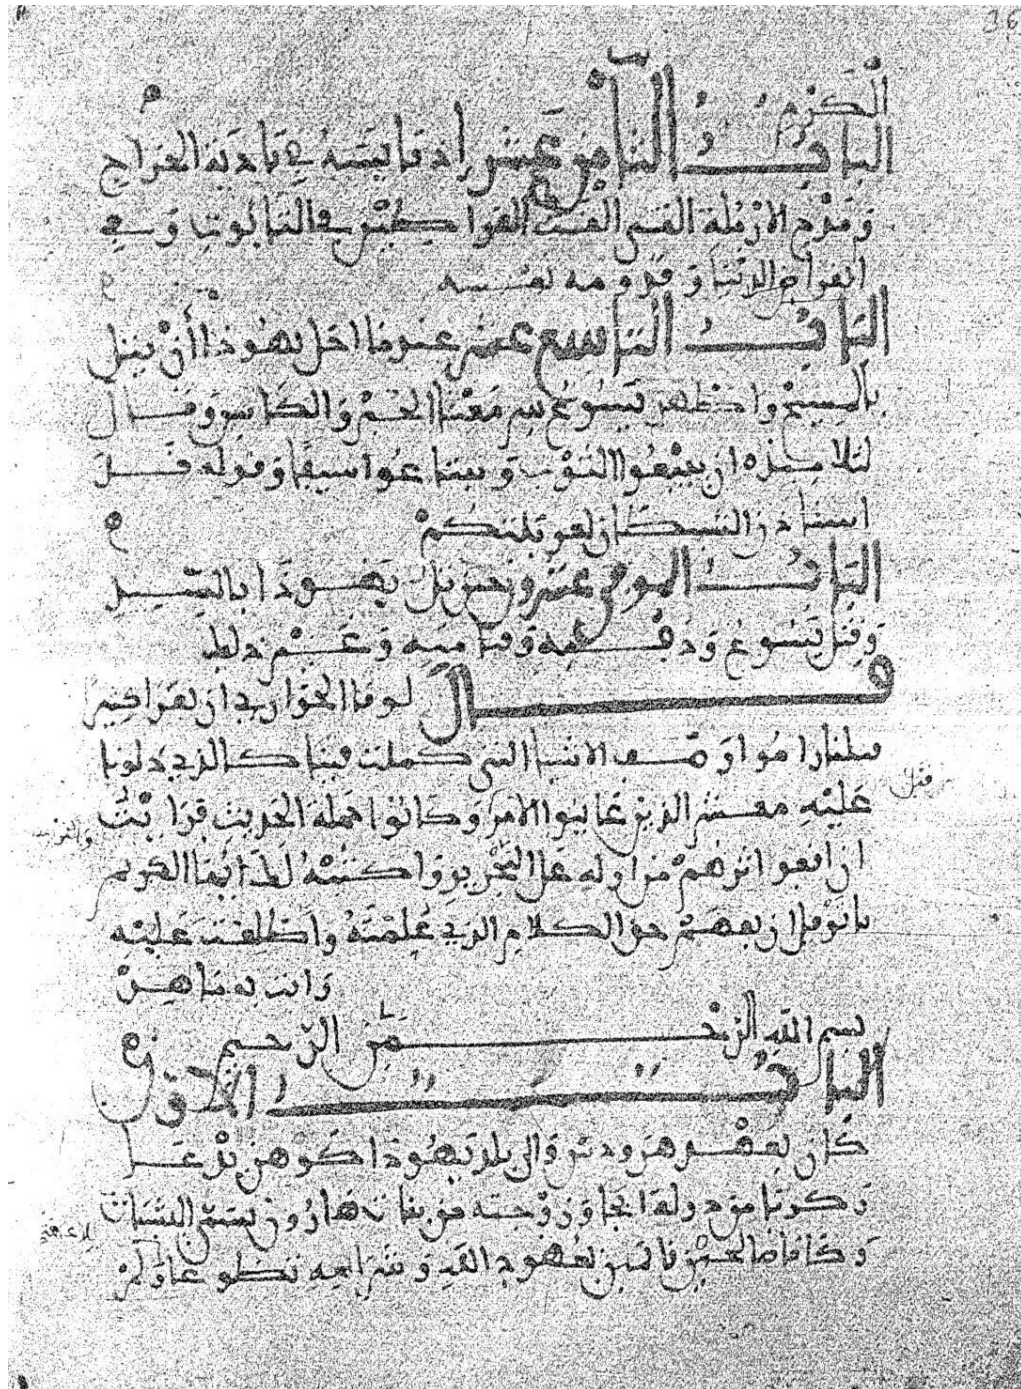 36
الكرم
الباب الثامن عشر اذ بايعته في تادية الخراج
ومدح الارملة التي القت الفوا كثير في التابوت وفي
انقراض الدنيا وقدومه بنفسه
الباب التاسع عشر عندما اخل يهوذا أن يدل
بالمسيح واذ ظهر يسوع سر معنا الخبز والكاس وقال
لتلاميذه ان يبيعوا الثوب ويبتاعوا سيفا وقوله قد
استاذن الشيطان لغربلتكم
الباب الموفي عشرون حين دل يهوذا بالسيد
وقتل يسوع ودفنه وقيامه وغير ذلك
قال لوقا الحواري ان نفرا كثير
ممن راموا وصف الاشيا التي كملت فينا كالذي دلونا
قبل
عليه معشر الذين عاينوا الامر وكانوا حملة الحديث فرايت
ان اقفوا اثرهم من اوله على التجريد واكتبه لك ايها الكريم
ياتوفيل ان تفهم حق الكلام الذي علمته واطلعت عليه
وانت به ماهر
بسم الله الرحمن الرحيم
الباب الاول
كان بعهد هرودس والي بلد يهوذا كوهن يدعا
زكريا من دولة ابيا وزوجته من بنات هارون تسمى اليشبات
وكانا صالحين قايمين بعهود الله وشرايعه